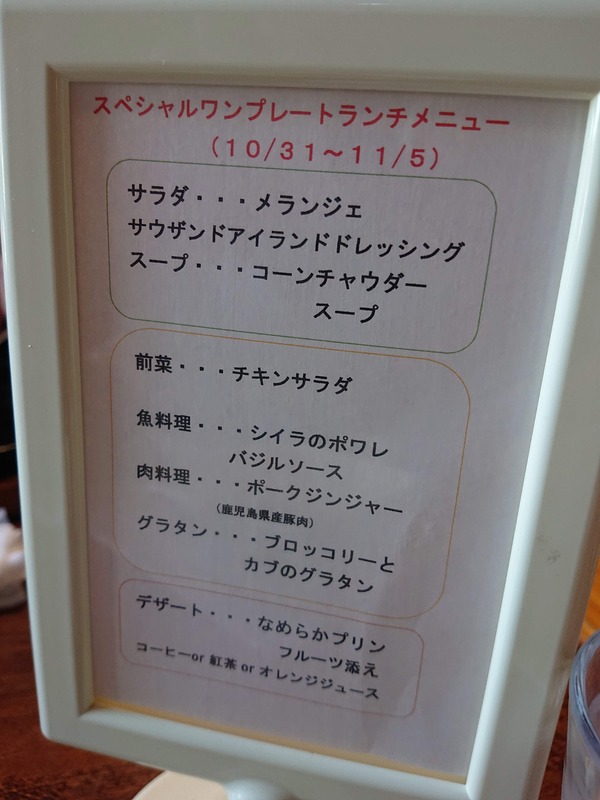 スペシャルワンプレートランチメニュー
（１０/３１～１１/５）
サラダ・・・メランジェ
サウザンドアイランドドレッシング
スープ・・・コーンチャウダー
スープ
前菜・・・チキンサラダ
魚料理・・・シイラのポワレ
バジルソース
肉料理・・・ポークジンジャー
（鹿児島県産豚肉）
グラタン・・・ブロッコリーと
カブのグラタン
デザート・・・なめらかプリン
フルーツ添え
コーヒーor 紅茶 or オレンジジュース